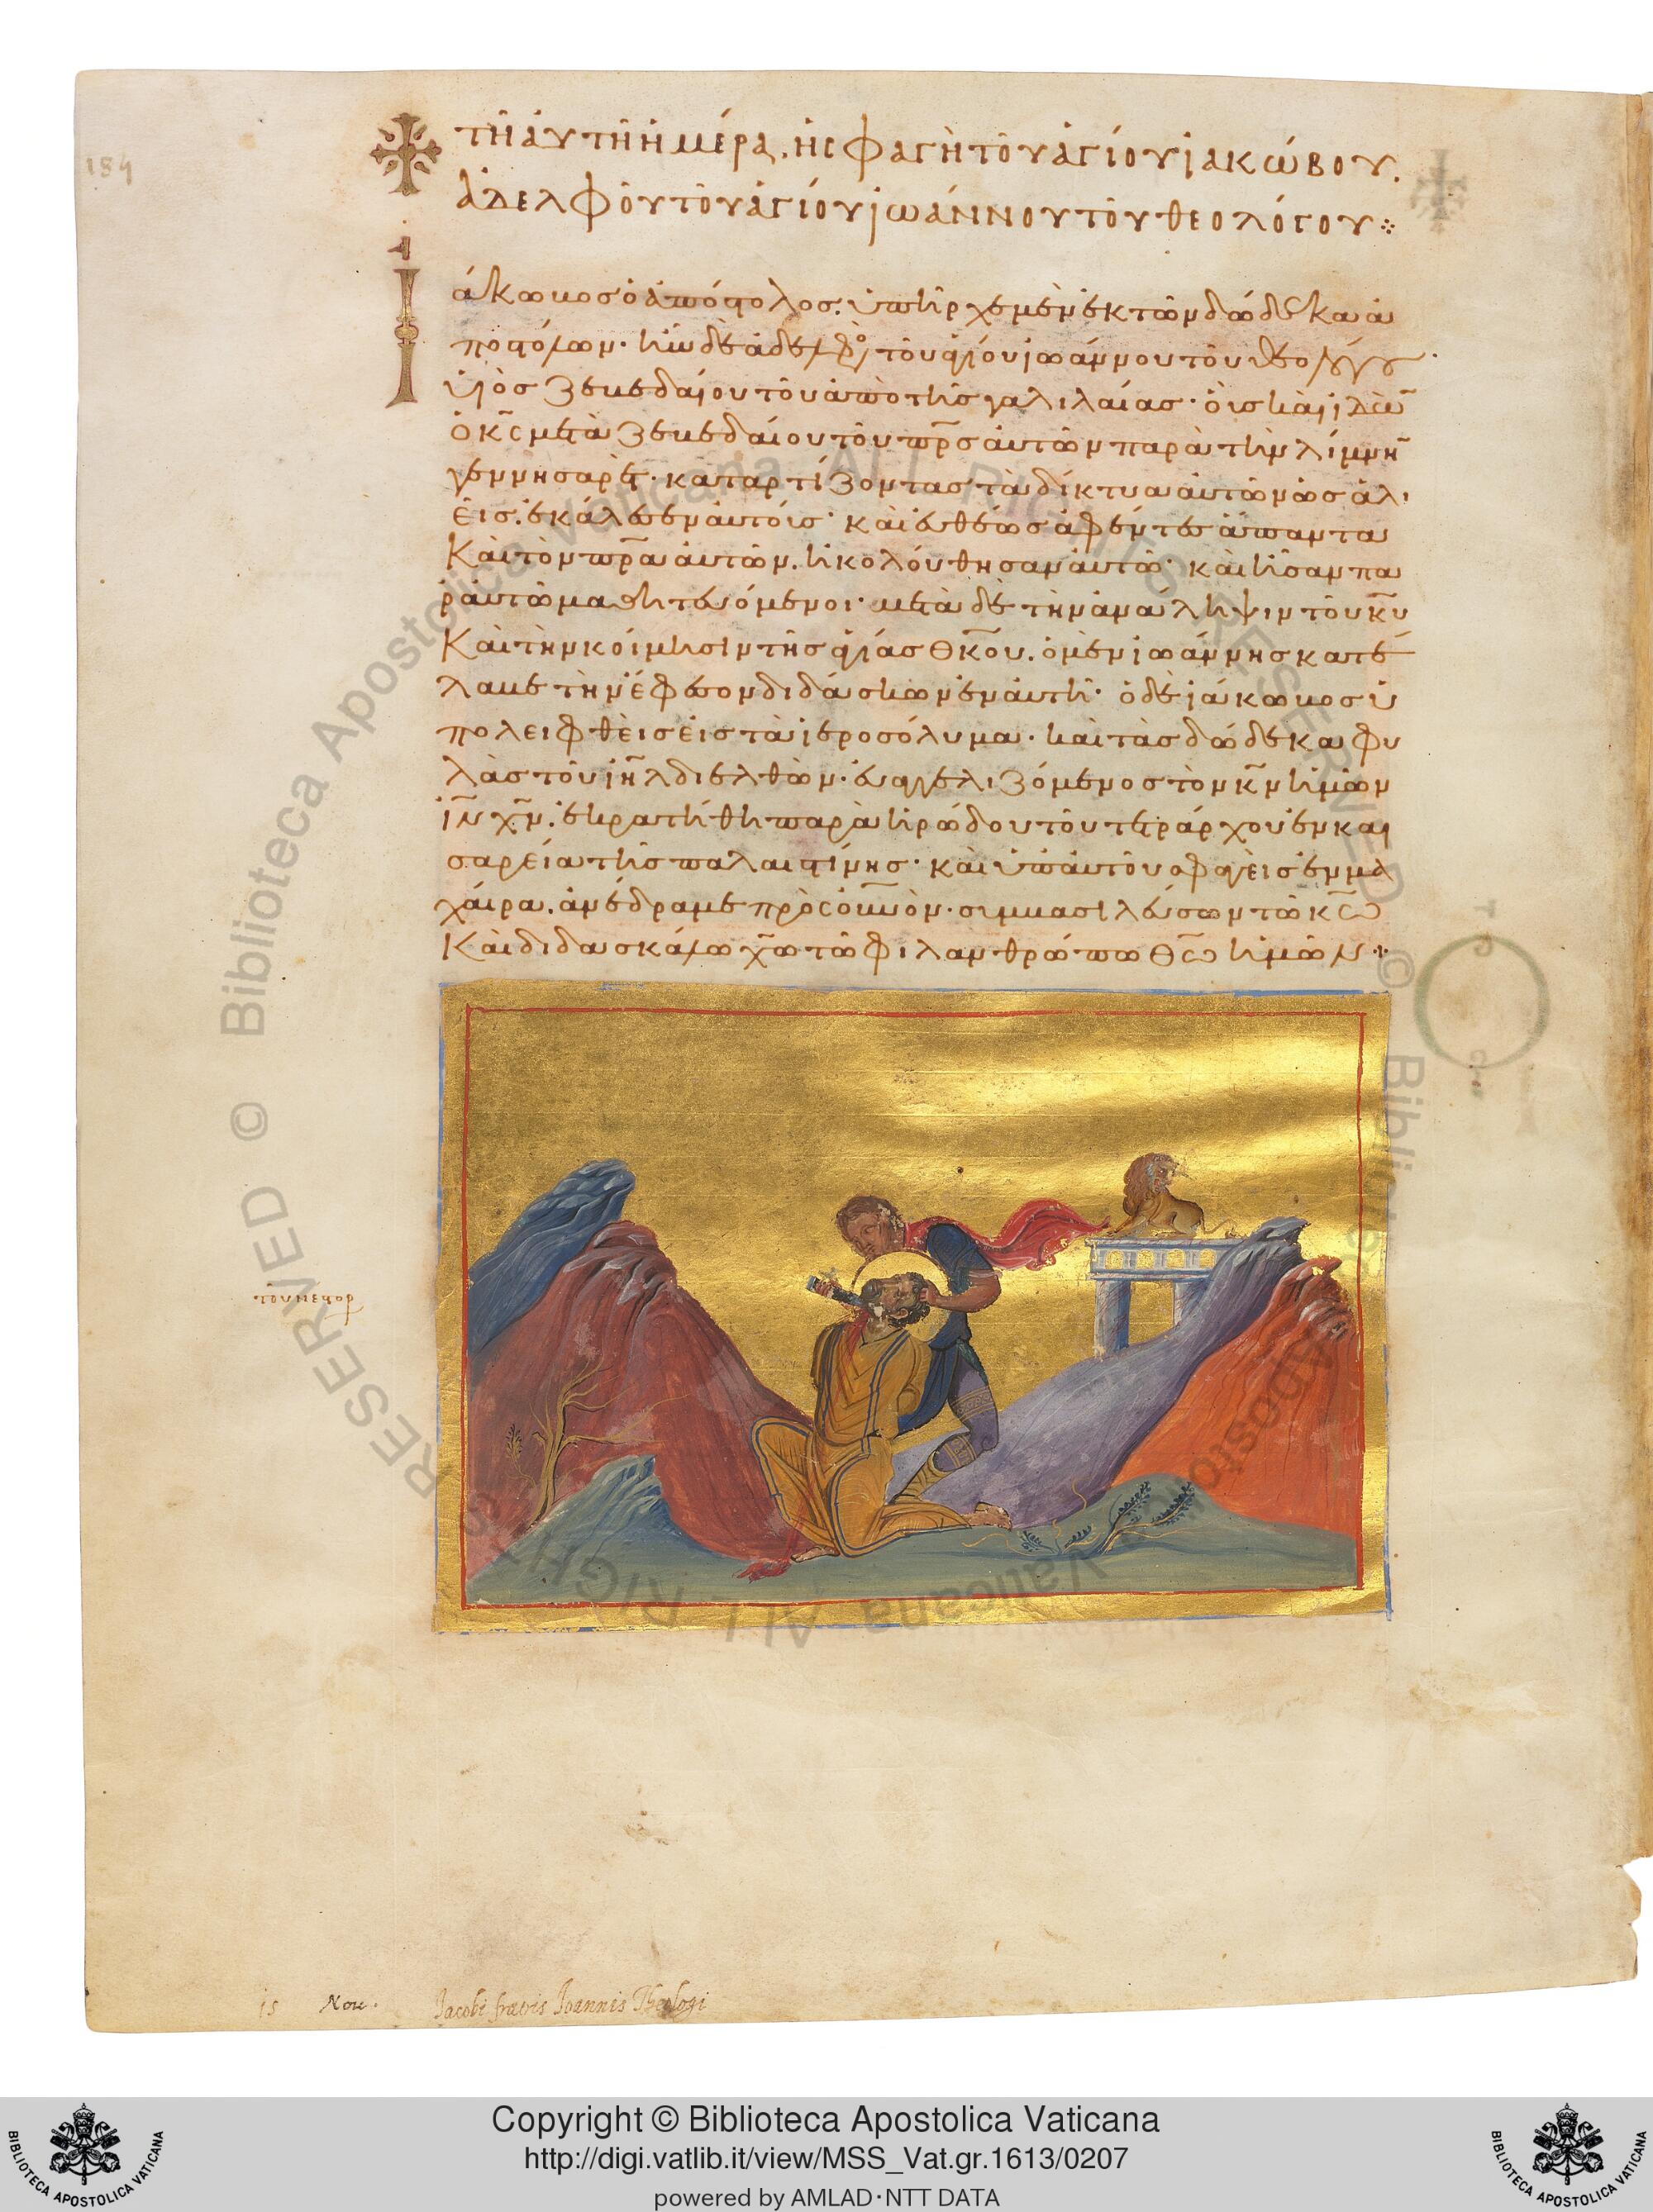 184
ΤΗ ἀΥΤῆ ἡΜέΡΑ, ἡ CΦΑΓὴ ΤΟῦ ἁΓίΟΥ ἰΑΚώΒΟΥ.
ἀΔΕΛΦΟῦ ΤΟῦ ἁΓίΟΥ ἰΩάΝΝΟΥ ΤΟῦ ΘΕΟΛόΓΟΥ
Ιάκωβος ὁ ἀπόστολος. ὑπῆρχε μὲν ἐκ τῶν δώδεκα ἀ
ποστόλων· ἦν δὲ ἀδελφὸς τοῦ ἁγίου ἰωάννου τοῦ θεολόγου·
υἱὸς ζεβεδαίου τοῦ ἀπὸ τῆς γαλιλαίας· οὓς καὶ ἰδὼν
ὁ κ̅ς̅ μετὰ ζεβεδαίου τοῦ π̅ρ̅ς̅ αὐτῶν παρὰ τὴν λίμνην
γεννησαρὲτ· καταρτίζοντας τὰ δίκτυα αὐτῶν ὡς ἁλι
εῖς. ἐκάλεσεν αὐτούς· καὶ εὐθέως ἀφέντες ἅπαντα
καὶ τὸν π̅ρ̅α̅ αὐτῶν. ἠκολούθησαν αὐτῷ· καὶ ἦσαν πα
ρ' αὐτῶ μαθητευόμενοι· μετὰ δὲ τὴν ἀνάληψιν τοῦ κ̅υ̅
καὶ τὴν κοίμησιν τῆς ἁγίας θ̅κ̅ου. ὁ μὲν ἰωάννης κατέ
λαβε τὴν ἔφεσον διδάσκων ἐν αὐτῆ· ὁ δὲ ἰάκωβος ὑ
πολειφθεὶς εἰς τὰ ἱεροσόλυμα· καὶ τὰς δώδεκα φυ
λὰς τοῦ ι̅η̅λ διελθὼν· εὐαγγελιζόμενος τὸν κ̅ν̅ ἡμῶν
ι̅ν̅ χ̅ν̅. ἐκρατήθη παρὰ ἡρώδου τοῦ τετράρχου ἐν και
σαρεία τῆς παλαιστίνης· καὶ ὑπ' αὐτοῦ σφαγεὶς ἐν μα
χαίρα. ἀνέδραμε πρὸς ο̅υ̅νὸν· συμβασιλεύσων τῶ κ̅ω̅
καὶ διδασκάλω χ̅ω̅ τῶ φιλανθρώπω θ̅ω̅ ἡμῶν
15 Nou. Jacobi fratris Joannis Theologi
© Biblioteca Apostolica Vaticana ALL RIGHTS RESERVED © Biblioteca Apostolica Vaticana ALL RIGHTS RESERVED
BIBLIOTECA APOSTOLICA VATICANA
Copyright © Biblioteca Apostolica Vaticana
http://digi.vatlib.it/view/MSS_Vat.gr.1613/0207
powered by AMLAD·NTT DATA
BIBLIOTECA APOSTOLICA VATICANA